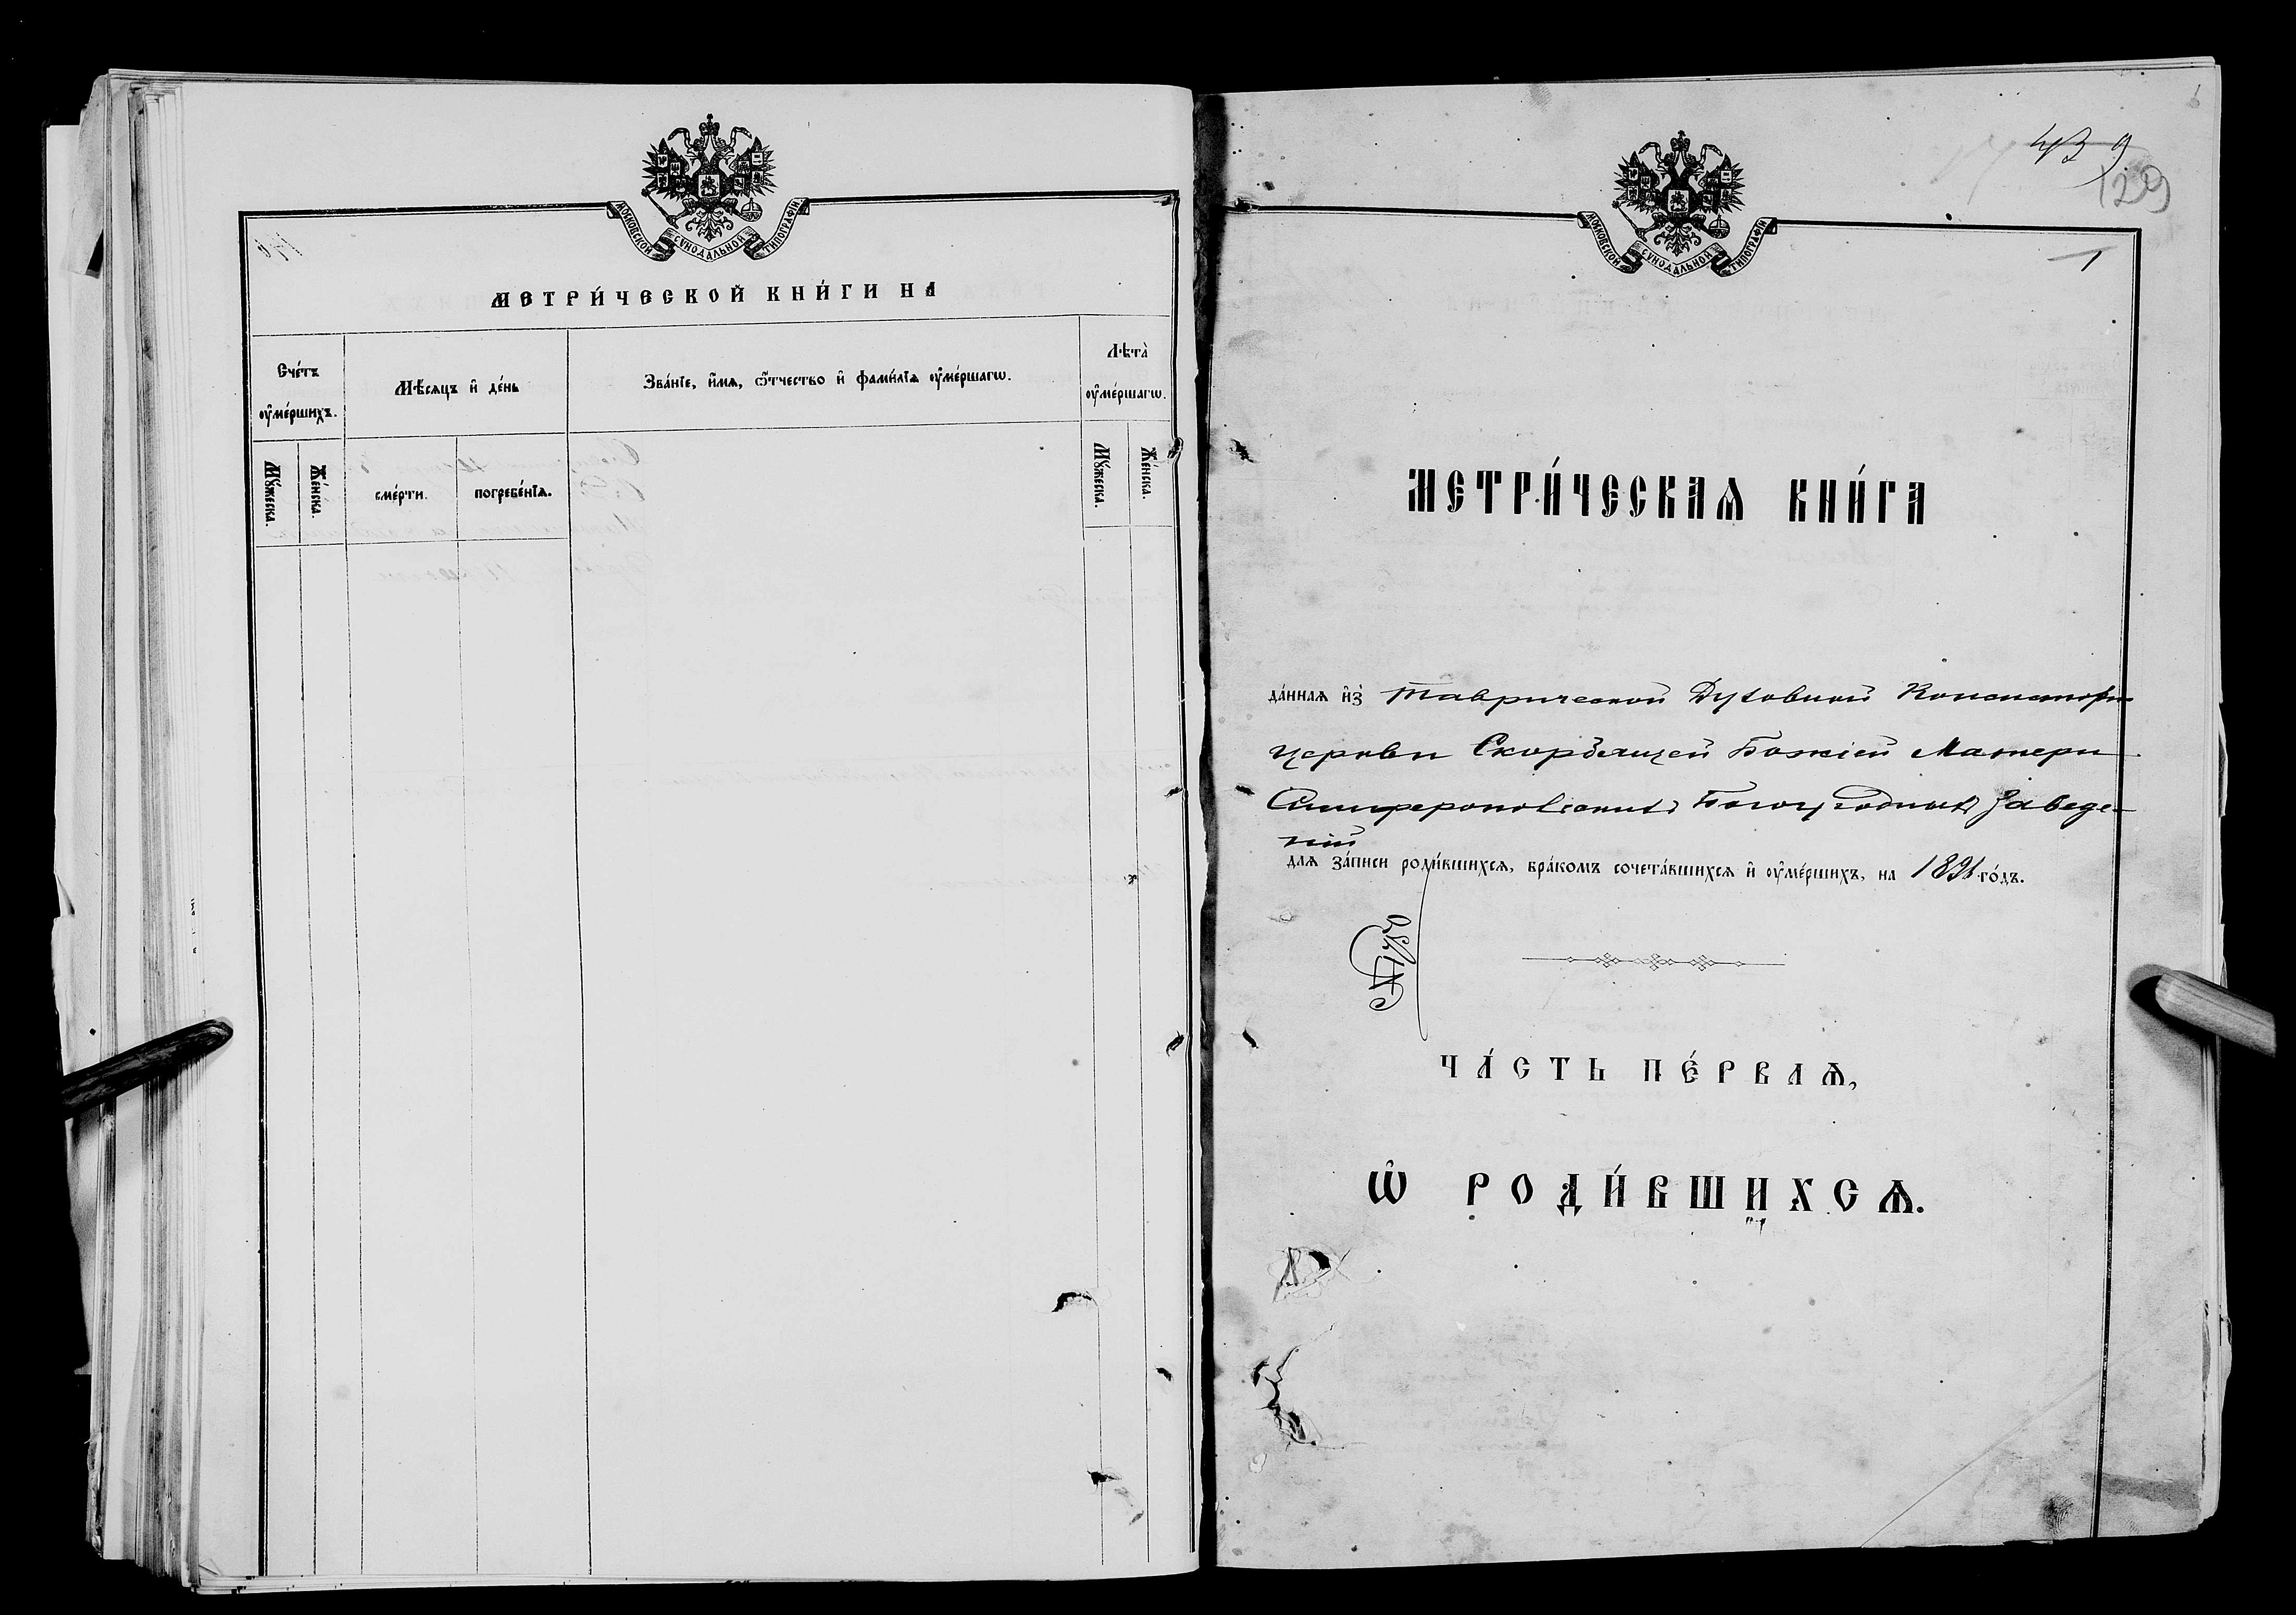 МОСКОВСКОЙ СѴНОДАЛЬНОЙ ТИПОГРАФІИ
МЕТРИ́ЧЕСКОЙ КНИ́ГИ НА
Сче́тъ ᲂу҆ме́ршихъ.
Мѣ́сяцъ и҆ де́нь
Зва́нїе, и҆́мѧ, ѻ҆́тчество и҆ фами́лїѧ ᲂу҆ме́ршагѡ.
Лѣта̀ ᲂу҆ме́ршагѡ.
Мꙋ́жеска.
Же́нска.
сме́рти.
погребе́нїѧ.
Мꙋ́жеска.
Же́нска.
9
129
МОСКОВСКОЙ СѴНОДАЛЬНОЙ ТИПОГРАФІИ
1
МЕТРИ́ЧЕСКАѦ КНИ́ГА
да́ннаѧ и҆з̾ Таврической Духовной Консистори
церкви Скорбящей Божіей Матери
Симферопольскихъ Богоугодныхъ Заведе-
ній
длѧ за́писи роди́вшихсѧ, бра́комъ сочета́вшихсѧ и҆ ᲂу҆ме́ршихъ, на го́дъ.
ЧА́СТЬ ПЕ́РВАѦ,
Ѡ҆ РОДИ́ВШИХСѦ.